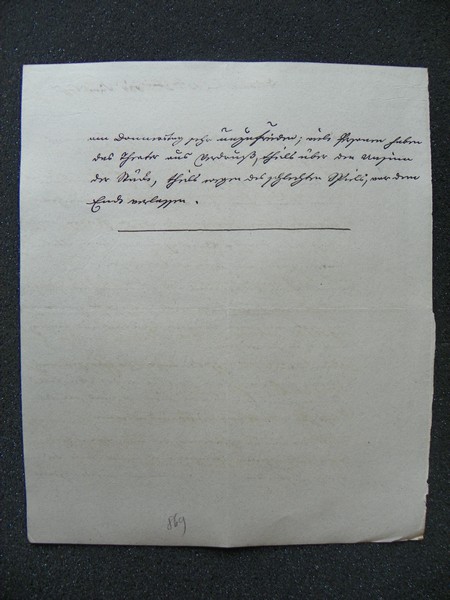 am Donnerstag sehr unzufrieden; viele Personen haben
das Theater aus Verdruß, theils über den Unsinn
der Stücks, theils wegen des schlechten Spiels, vor dem
Ende verlassen.
869